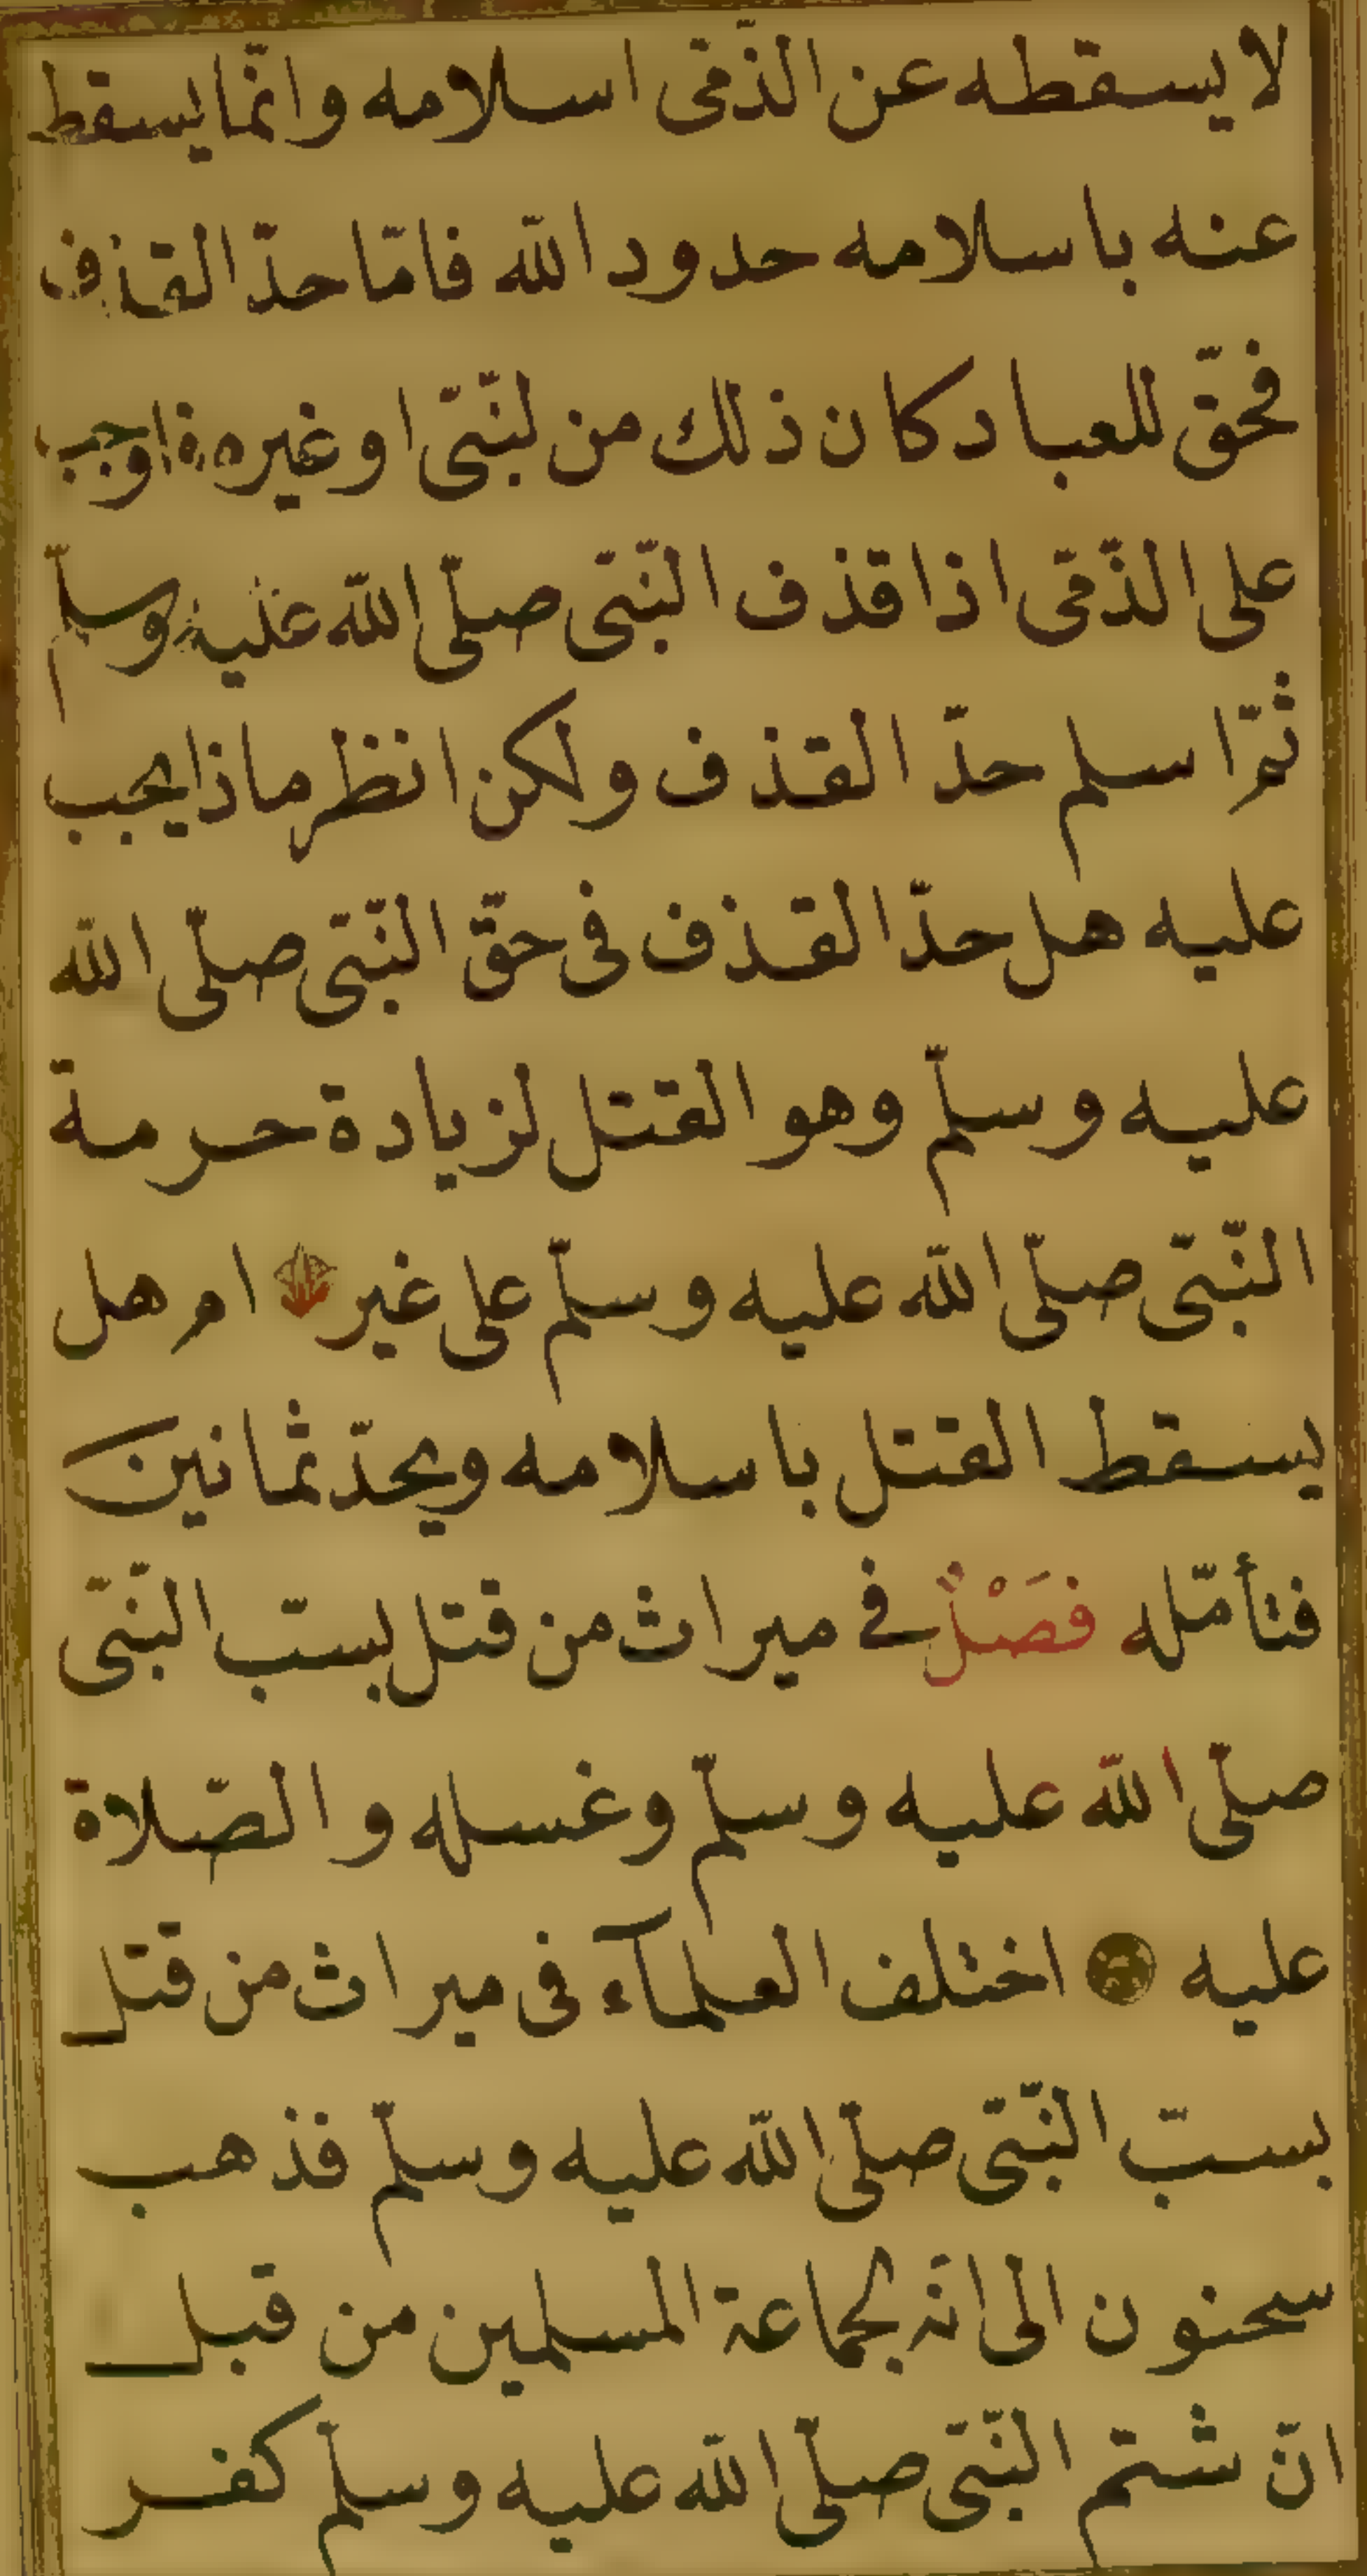 لا يسقطه عن الذّمّى اسلامه وانّما يسقط
عنه باسلامه حدود الله فامّا حدّ القذف
فحقّ للعباد كان ذلك من لنّبىّ او غيره فاوجب
على الذّمّى اذا قذف النّبىّ صلّى الله عليه وسلّم
ثمّ اسلم حدّ القذف ولكن انظر ماذا يجب
عليه هل حدّ القذف فى حقّ النّبىّ صلّى الله
عليه وسلّم وهو القتل لزيادة حرمة
النّبىّ صلّى الله عليه وسلّم على غير ام هل
يسقط القتل باسلامه ويحدّ ثمانين
فتأمّله فَصْلٌ فى ميراث من قتل بسبّ النّبىّ
صلّى الله عليه وسلّم وغسله والصّلاة
عليه اختلف العلمآء فى ميراث من قتل
بسبّ النّبىّ صلّى الله عليه وسلّم فذهب
سحنون الى انّه لجماعة المسلمين من قبل
انّ شتم النّبىّ صلّى الله عليه وسلّم كفر